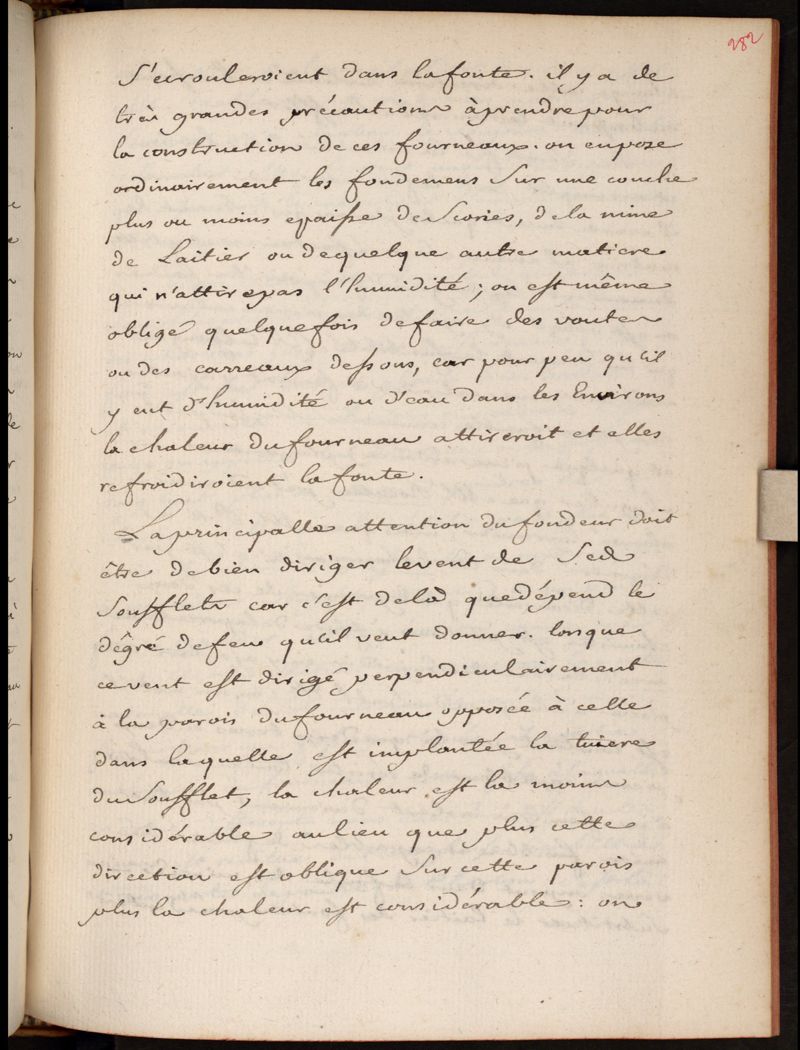 282
S'ecrouleroient dans la fonte. il y a de
très grandes précautions à prendre pour
la construction de ces fourneaux. on en pose
ordinairement les fondemens Sur une couche
plus ou moins epaisse de Scories, de la mine
de Laitier ou de quelque autre matiere
qui n'attire pas l'humidité; on est même
obligé quelquefois de faire des voutes
ou des carreaux dessous, car pour peu qu'il
y eut d'humidité ou d'eau dans les Environs
la chaleur du fourneau attireroit et elles
refroidiroient la fonte.
La principalle attention du fondeur doit
être de bien diriger le vent de Ses
Soufflets car c'est delà que dépend le
dégré de feu qu'il veut donner. lorsque
ce vent est dirigé perpendiculairement
à la parois du fourneau opposée à celle
dans laquelle est implantée la tuiere
du Soufflet, la chaleur est la moins
considérable au lieu que plus cette
direction est oblique Sur cette parois
plus la chaleur est considérable: on